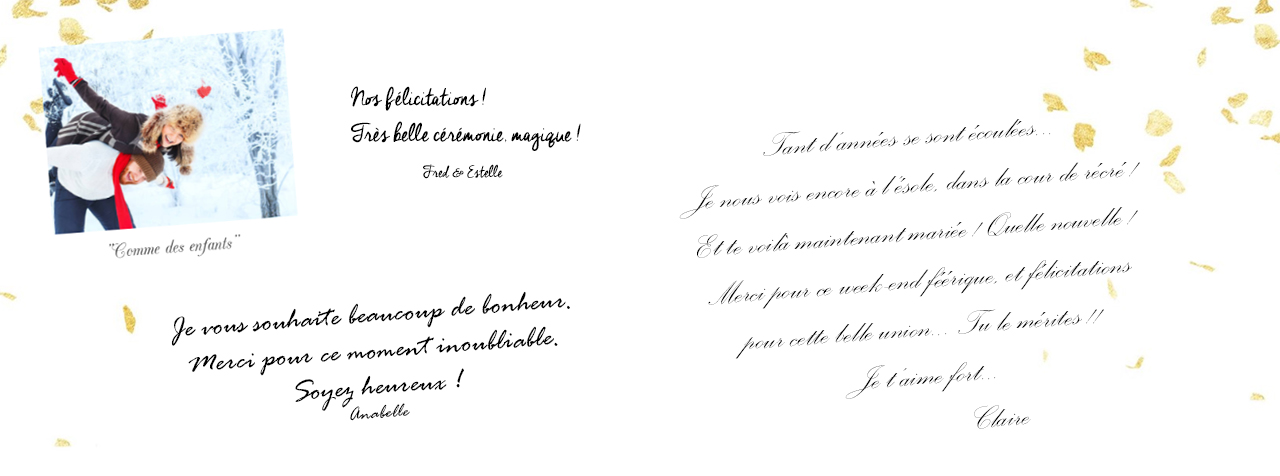 Nos félicitations !
Très belle cérémonie, magique !
Fred & Estelle
"Comme des enfants"
Je vous souhaite beaucoup de bonheur.
Merci pour ce moment inoubliable.
Soyez heureux !
Anabelle
Tant d'années se sont écoulées...
Je nous vois encore à l'ésole, dans la cour de récré !
Et te voilà maintenant mariée ! Quelle nouvelle !
Merci pour ce week-end féérique, et félicitations
pour cette belle union... Tu le mérites !!
Je t'aime fort...
Claire